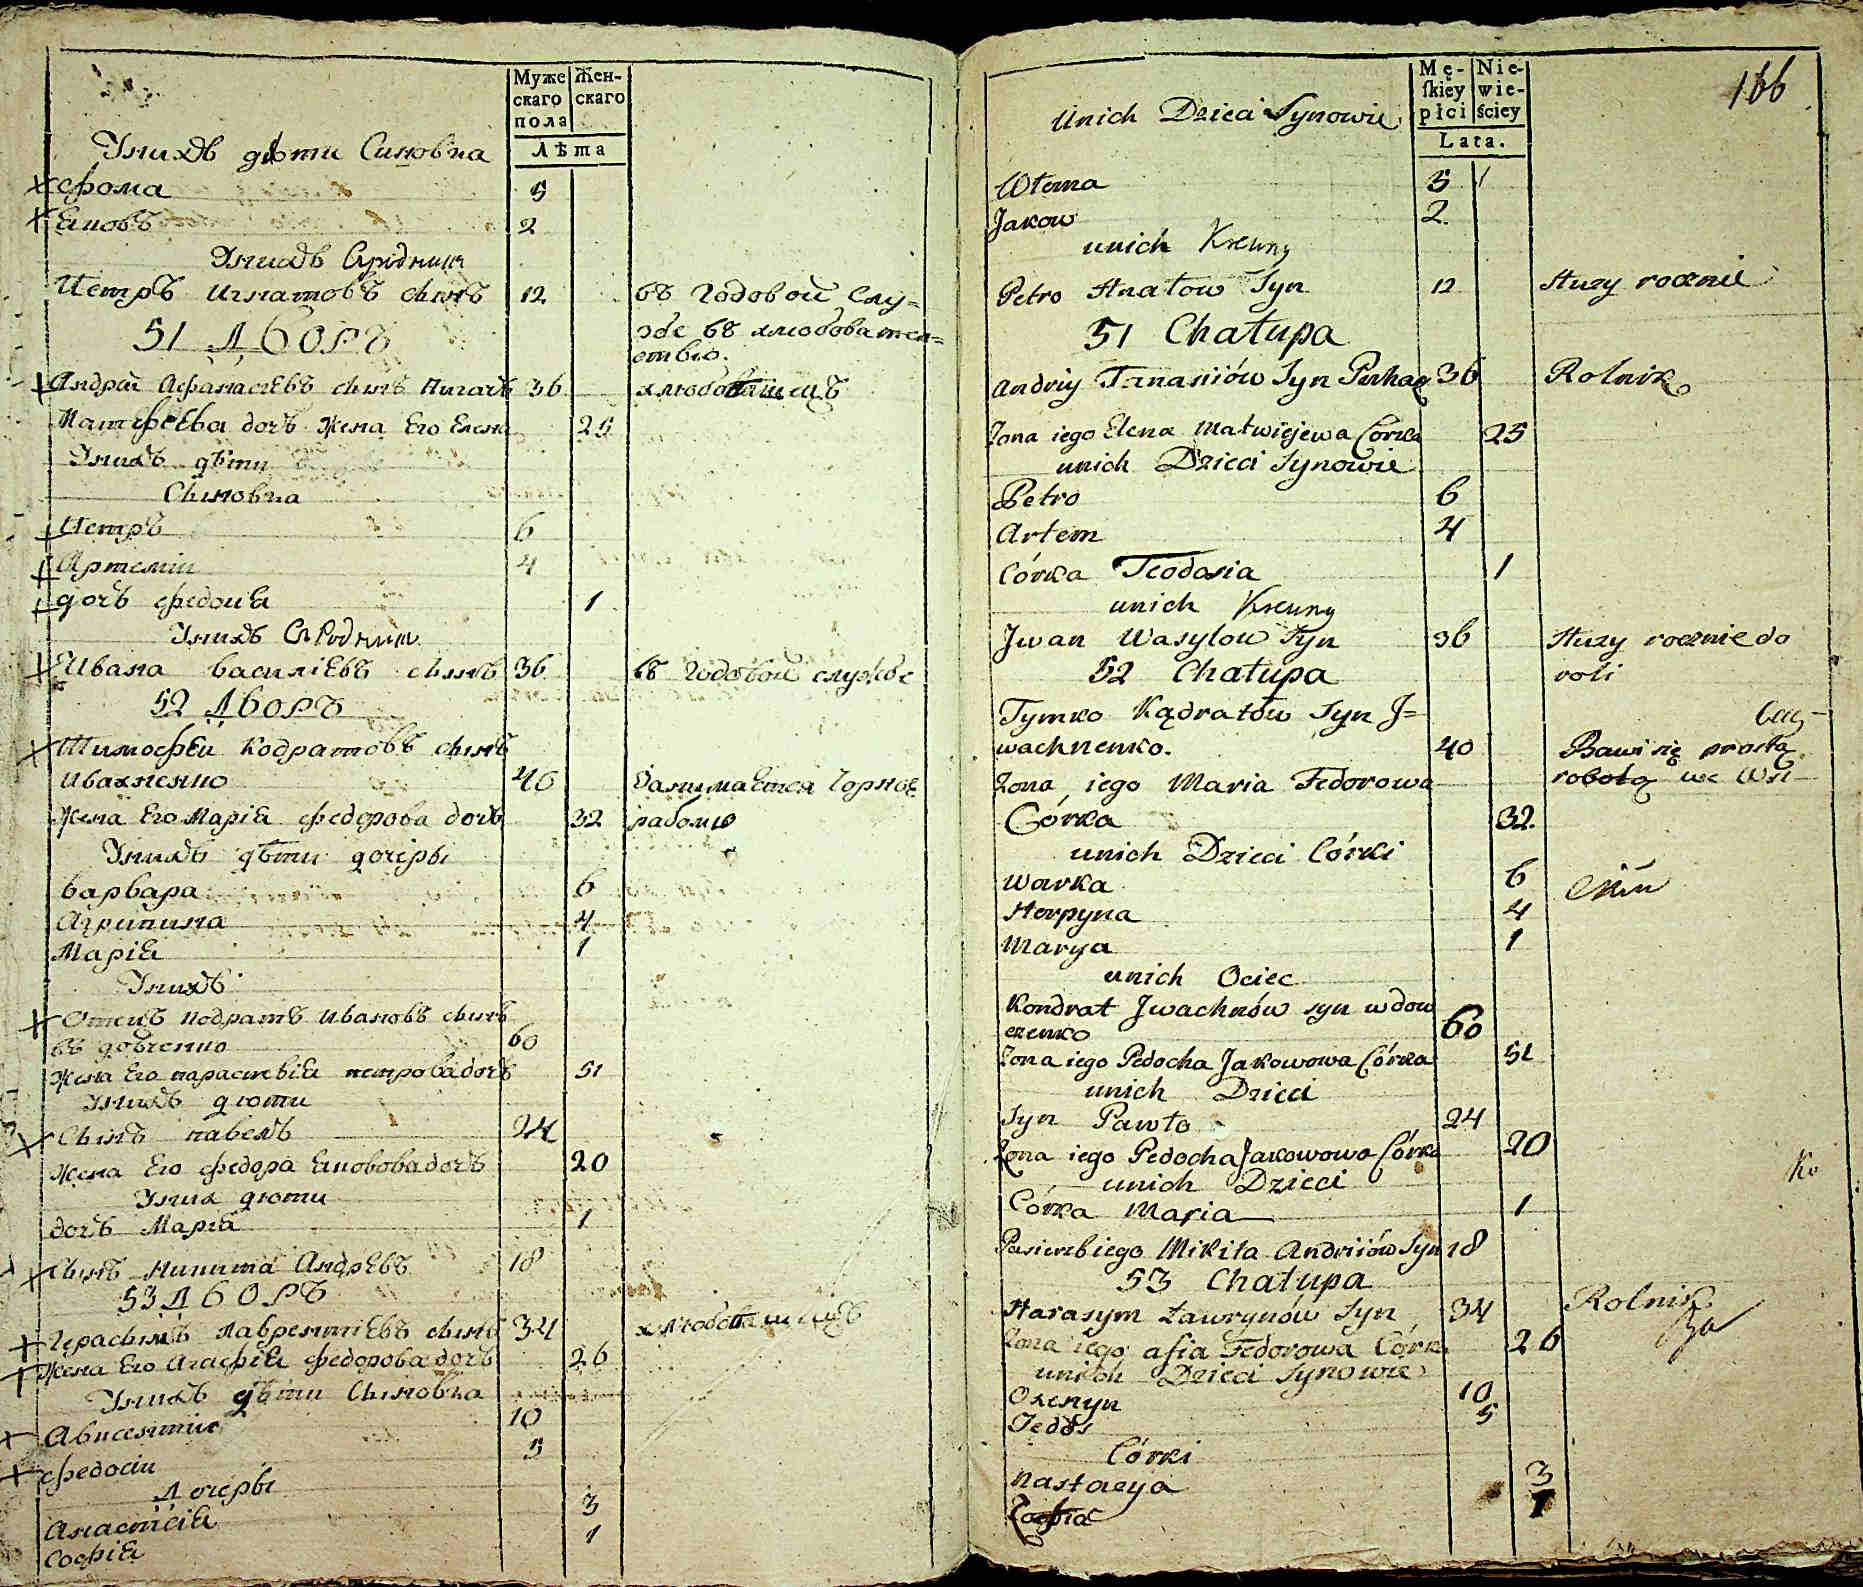 Муже
скаго
пола
Жен-
скаго
Лѣта
Унихъ дѣти Синовиа
Фома 5
Ековъ 2
Унихъ Сродники
Петръ Игнатовъ сынъ 12 въ годовой слу=
жбе въ хлюбовател=
ствю.
51 Дворъ
Андрѣй Афанасіевъ сынъ 36 хлюбопашецъ
Матфеева дочъ жена Его Елена 25
Унихъ дѣти
Сыновиа
Петръ 6
Артемии 4
дочъ Федосіа 1
Унихъ Сродники
Ивана василіевъ сынъ 36 въ годовой службе
52 Дворъ
Тимофеи Кодратовъ сынъ
Ивахненко 40 Занимаетса Чорною
жена Его Маріа федорова дочъ 32 работю
Унихъ дѣти дочеры
варвара 6
Агрипина 4
Маріа 1
Унихъ
Отецъ Кодратъ Ивановъ сынъ
въ довченко 60
жена Его парасквіа петрова дочъ 51
Унихъ дюти
Сынъ павелъ 24
жена Его федора Еаковова дочъ 20
Уних дюти
дочъ Маріа 1
Сынъ Никита Андрѣевъ 18
53 Дворъ
Герасымъ Лаврентіевъ сынъ 34 хлюбопашецъ
жена Его Агафіа федорова дочъ 26
Унихъ дѣти Сыновиа
Авксентии 10
федосіи 5
Дочеры
Анастасіа 3
Софіа 1
166
Mę-
skiey
płci
Nie-
wie-
ściey
Lata.
Unich Dzieci Synowie
Wtema 5
Jakow 2
unich Krewny
Petro Hnatow Syn 12 Służy rocznie
51 Chałupa
Andriy Tananiów Syn 36 Rolnik
Zona iego Elena Matwiejewa Córka 25
unich Dzieci Synowie
Petro 6
Artem 4
Córka Teodosia 1
unich Krewny
Jwan Wasylow Syn 36 Służy rocznie do
roli
52 Chałupa
Tymko Kądratów Syn J=
wachnenko. 40 Bawi się prostą
robotą we Wsi
Zona iego Maria Fedorowa
Córka 32
unich Dzieci Córki
Warka 6
Horpyna 4
Marya 1
unich Ociec
Kondrat Jwachnów syn wdow
czenko 60
Zona iego Pedocha Jakowowa Córka 51
unich Dzieci
Syn Pawło 24
Zona iego Pedocha Jakowowa Córka 20
unich Dzieci
Córka Maria 1
Pasierzb iego Mikita Andriiów Syn 18
Ko
53 Chałupa
Harasym Ławrynów Syn 34 Rolnik
Zona iego afia Fedorowa Córka 26
unich Dzieci Synowie
Oxenyn 10
Fedos 5
Córki
Nastazya 3
Zofia 1